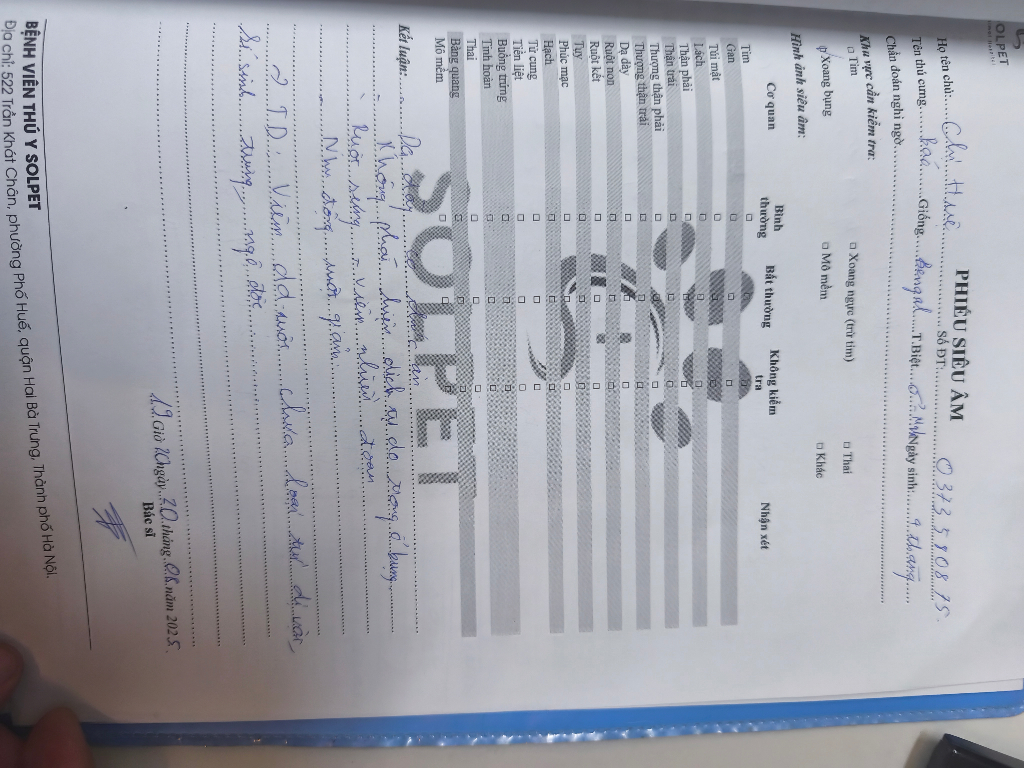 OLPET
PHIẾU SIÊU ÂM
Họ tên chủ:.....Chị Huê..........Số ĐT:.....0373590875.
Tên thú cưng.......Giống...Bengal....T.Biệt...♂...Ngày sinh:..9 tháng
Chẩn đoán nghi ngờ
Khu vực cần kiểm tra:
□ Tim □ Xoang ngực (trừ tim) □ Thai
Xoang bụng □ Mô mềm □ Khác
Hình ảnh siêu âm:
Cơ quan Bình thường Bất thường Không kiểm tra Nhận xét
Tim □ □ □
Gan □ □ □
Túi mật □ □ □
Lách □ □ □
Thận phải □ □ □
Thận trái □ □ □
Thượng thận phải □ □ □
Thượng thận trái □ □ □
Dạ dày □ □ □
Ruột non □ □ □
Ruột kết □ □ □
Tụy □ □ □
Phúc mạc □ □ □
Hạch □ □ □
Tử cung □ □ □
Tiền liệt □ □ □
Buồng trứng □ □ □
Tinh hoàn □ □ □
Thai □ □ □
Bàng quang □ □ □
Mô mềm □ □ □
SOLPET
Kết luận:.....Dạ dày
Không phát hiện dịch tự do trong ổ bụng
Ruột sưng - viêm nhiều đoạn
Nhu động ruột giảm
→ T.D: Viêm dd ruột chưa loại trừ dị vật,
kí sinh trùng, ngộ độc
19 Giờ 10 ngày 20 tháng 08 năm 2025
Bác sĩ
BỆNH VIỆN THÚ Y SOLPET
Địa chỉ: 522 Trần Khát Chân, phường Phố Huế, quận Hai Bà Trưng, Thành phố Hà Nội.